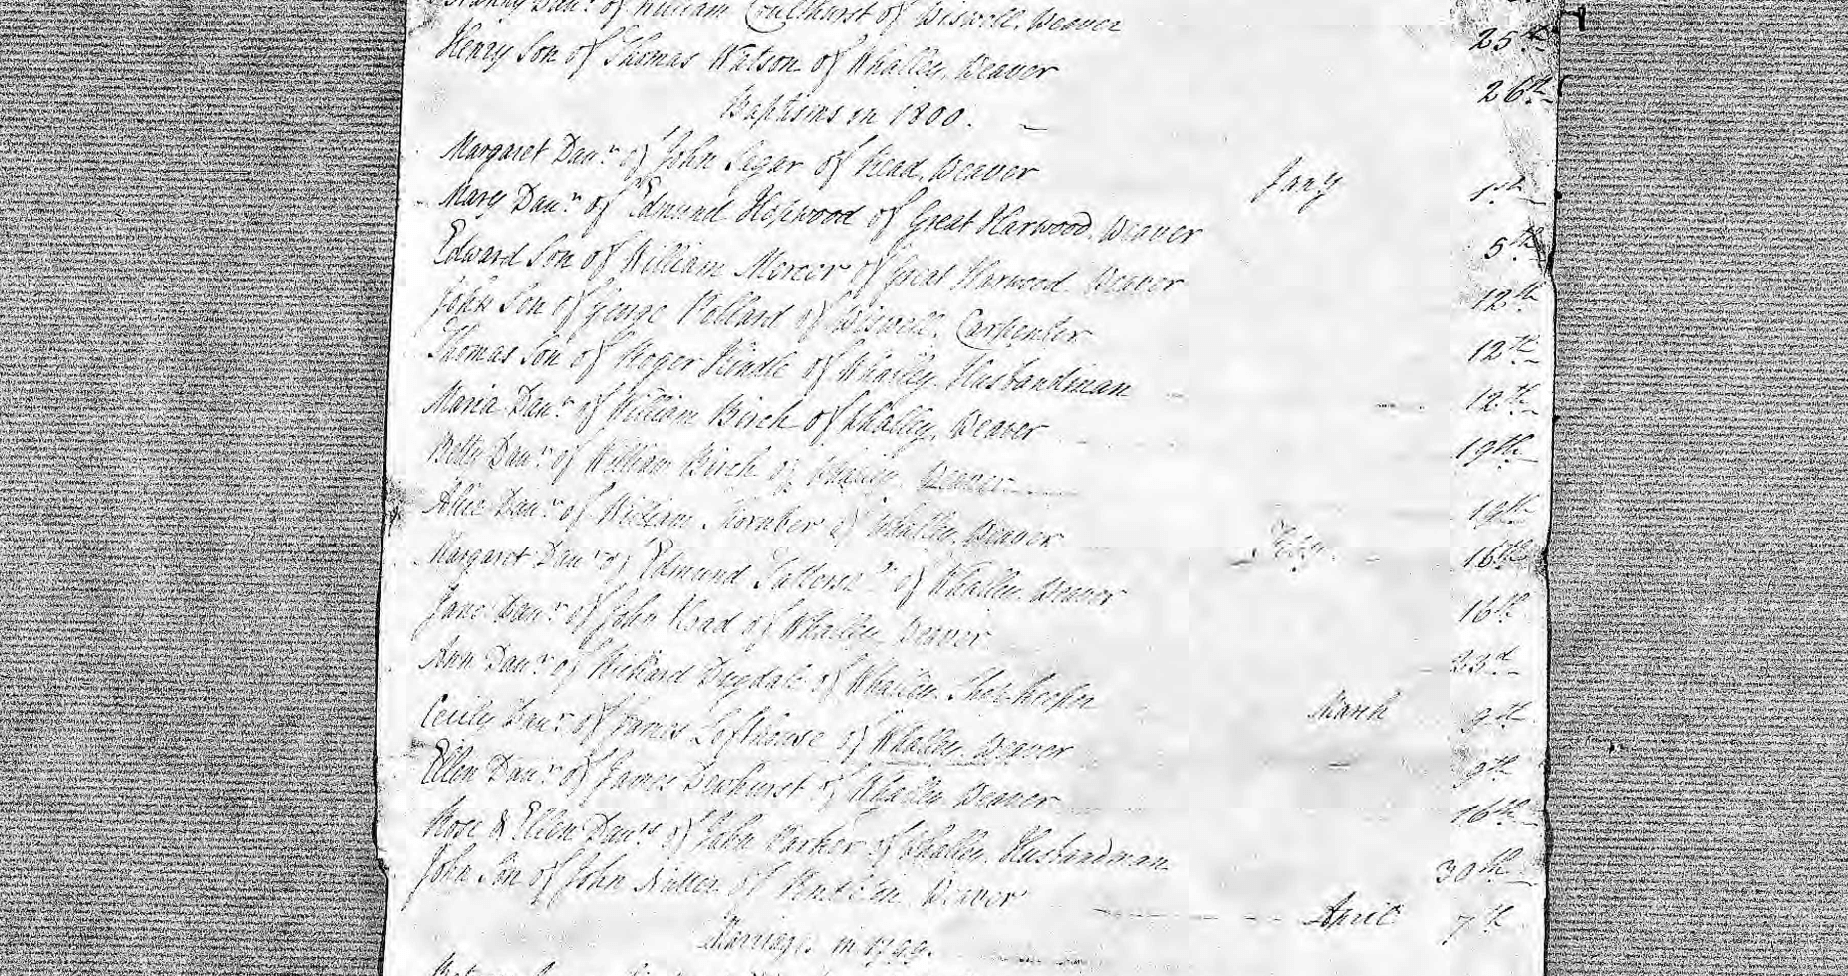 Nanny Daur. of William Coulthurst of Wiswell, Weaver 25th
Henry Son of Thomas Watson of Whalley, Weaver 26th
Baptisms in 1800.
Margaret Daur. of John Sagar of Read, Weaver Jany 1st
Mary Daur. of Edmund Hepwood of Great Harwood, Weaver 5th
Edward Son of William Mercer of Great Harwood Weaver 12th
John Son of George Pollard of Wiswell, Carpenter 12th
Thomas Son of Roger Hindle of Whalley, Husbandman 12th
Maria Daur. of William Birch of Whalley, Weaver 19th
Betty Daur. of William Birch of Whalley, Weaver 19th
Alice Daur. of William Thornber of Whalley, Weaver Feby. 16th
Margaret Daur. of Edmund of Whalley, Weaver 16th
Jane Daur. of John of Whalley, Weaver 23d
Ann Daur. of Richard Dugdale of Whalley, March 9th
Cecily Daur. of James Lofthouse of Whalley, Weaver 9th
Ellen Daur. of James Dewhurst of Whalley, Weaver 16th
Rose & Ellen Daurs of John Parker of Whalley, Husbandman 30th
John Son of John Nutter of Weaver April 7th
Marriages in 1799.